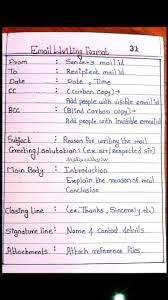 Email Writing Format 31
From : Sender's mail id
To : Recipient mail id
Date : Date, Time
CC : (carbon copy)→
Add people with visible email id
BCC : (Blind carbon copy)→
Add people with invisible email id
Subject : Reason for writing the mail
Greeting/Salutation : (ex. sir/Respected sir)
Main Body : Introduction
Explain the reason of mail
Conclusion
Closing Line : (ex. Thanks, Sincerely etc)
Signature line : Name & Contact details
Attachments : Attach reference files